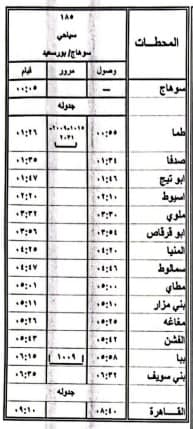 المحطات
١٨٥
سياحي
سوهاج/بورسعيد
وصول مرور قيام
سوهاج — ٠٠:٠٥
جدوله
طما ٠٠:٥٥ ٠١:٢٦
صدفا ٠١:٣٤ ٠١:٣٥
ابو تيج ٠١:٤٦ ٠١:٤٧
اسيوط ٠٢:١٠ ٠٢:٢٠
ملوي ٠٣:٣٠ ٠٣:٣٢
ابو قرقاص ٠٣:٥٤ ٠٣:٥٦
المنيا ٠٤:٢٠ ٠٤:٢٥
سمالوط ٠٤:٤٦ ٠٤:٤٧
مطاي ٠٥:٠٠ ٠٥:٠١
بني مزار ٠٥:١٠ ٠٥:١١
مغاغه ٠٥:٢٥ ٠٥:٢٦
الفشن ٠٥:٤٢ ٠٥:٤٣
ببا ٠٥:٥٨ ١٠٠٩ ٠٦:١٥
بني سويف ٠٦:٣٢ ٠٦:٣٥
جدوله
القاهرة ٠٨:٤٠ ٠٩:١٠